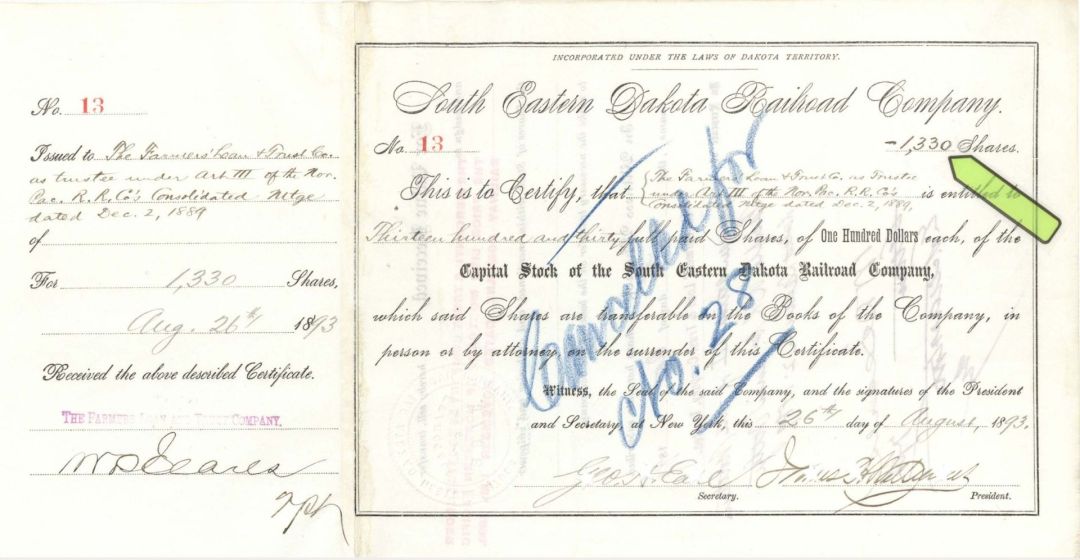 No. 13
Issued to The Farmers' Loan & Trust Co.
as trustee under Art III of the Nor.
Pac. R. R. Co's Consolidated Mtge
dated Dec. 2, 1889
of
For 1,330 Shares,
Aug. 26th 1893
Received the above described Certificate.
THE FARMERS LOAN AND TRUST COMPANY.
INCORPORATED UNDER THE LAWS OF DAKOTA TERRITORY.
South Eastern Dakota Railroad Company.
No. 13
1,330 Shares.
This is to Certify, that The Farmers' Loan & Trust Co. as Trustee
under Art III of the Nor. Pac. R. R. Co's
Consolidated Mtge dated Dec. 2, 1889, is entitled to
Thirteen hundred and thirty full paid Shares, of One Hundred Dollars each, of the
Capital Stock of the South Eastern Dakota Railroad Company,
which said Shares are transferable on the Books of the Company, in
person or by attorney, on the surrender of this Certificate.
Witness, the Seal of the said Company, and the signatures of the President
and Secretary, at New York, this 26th day of August, 1893.
Geo. H. Earl
Secretary.
President.
28